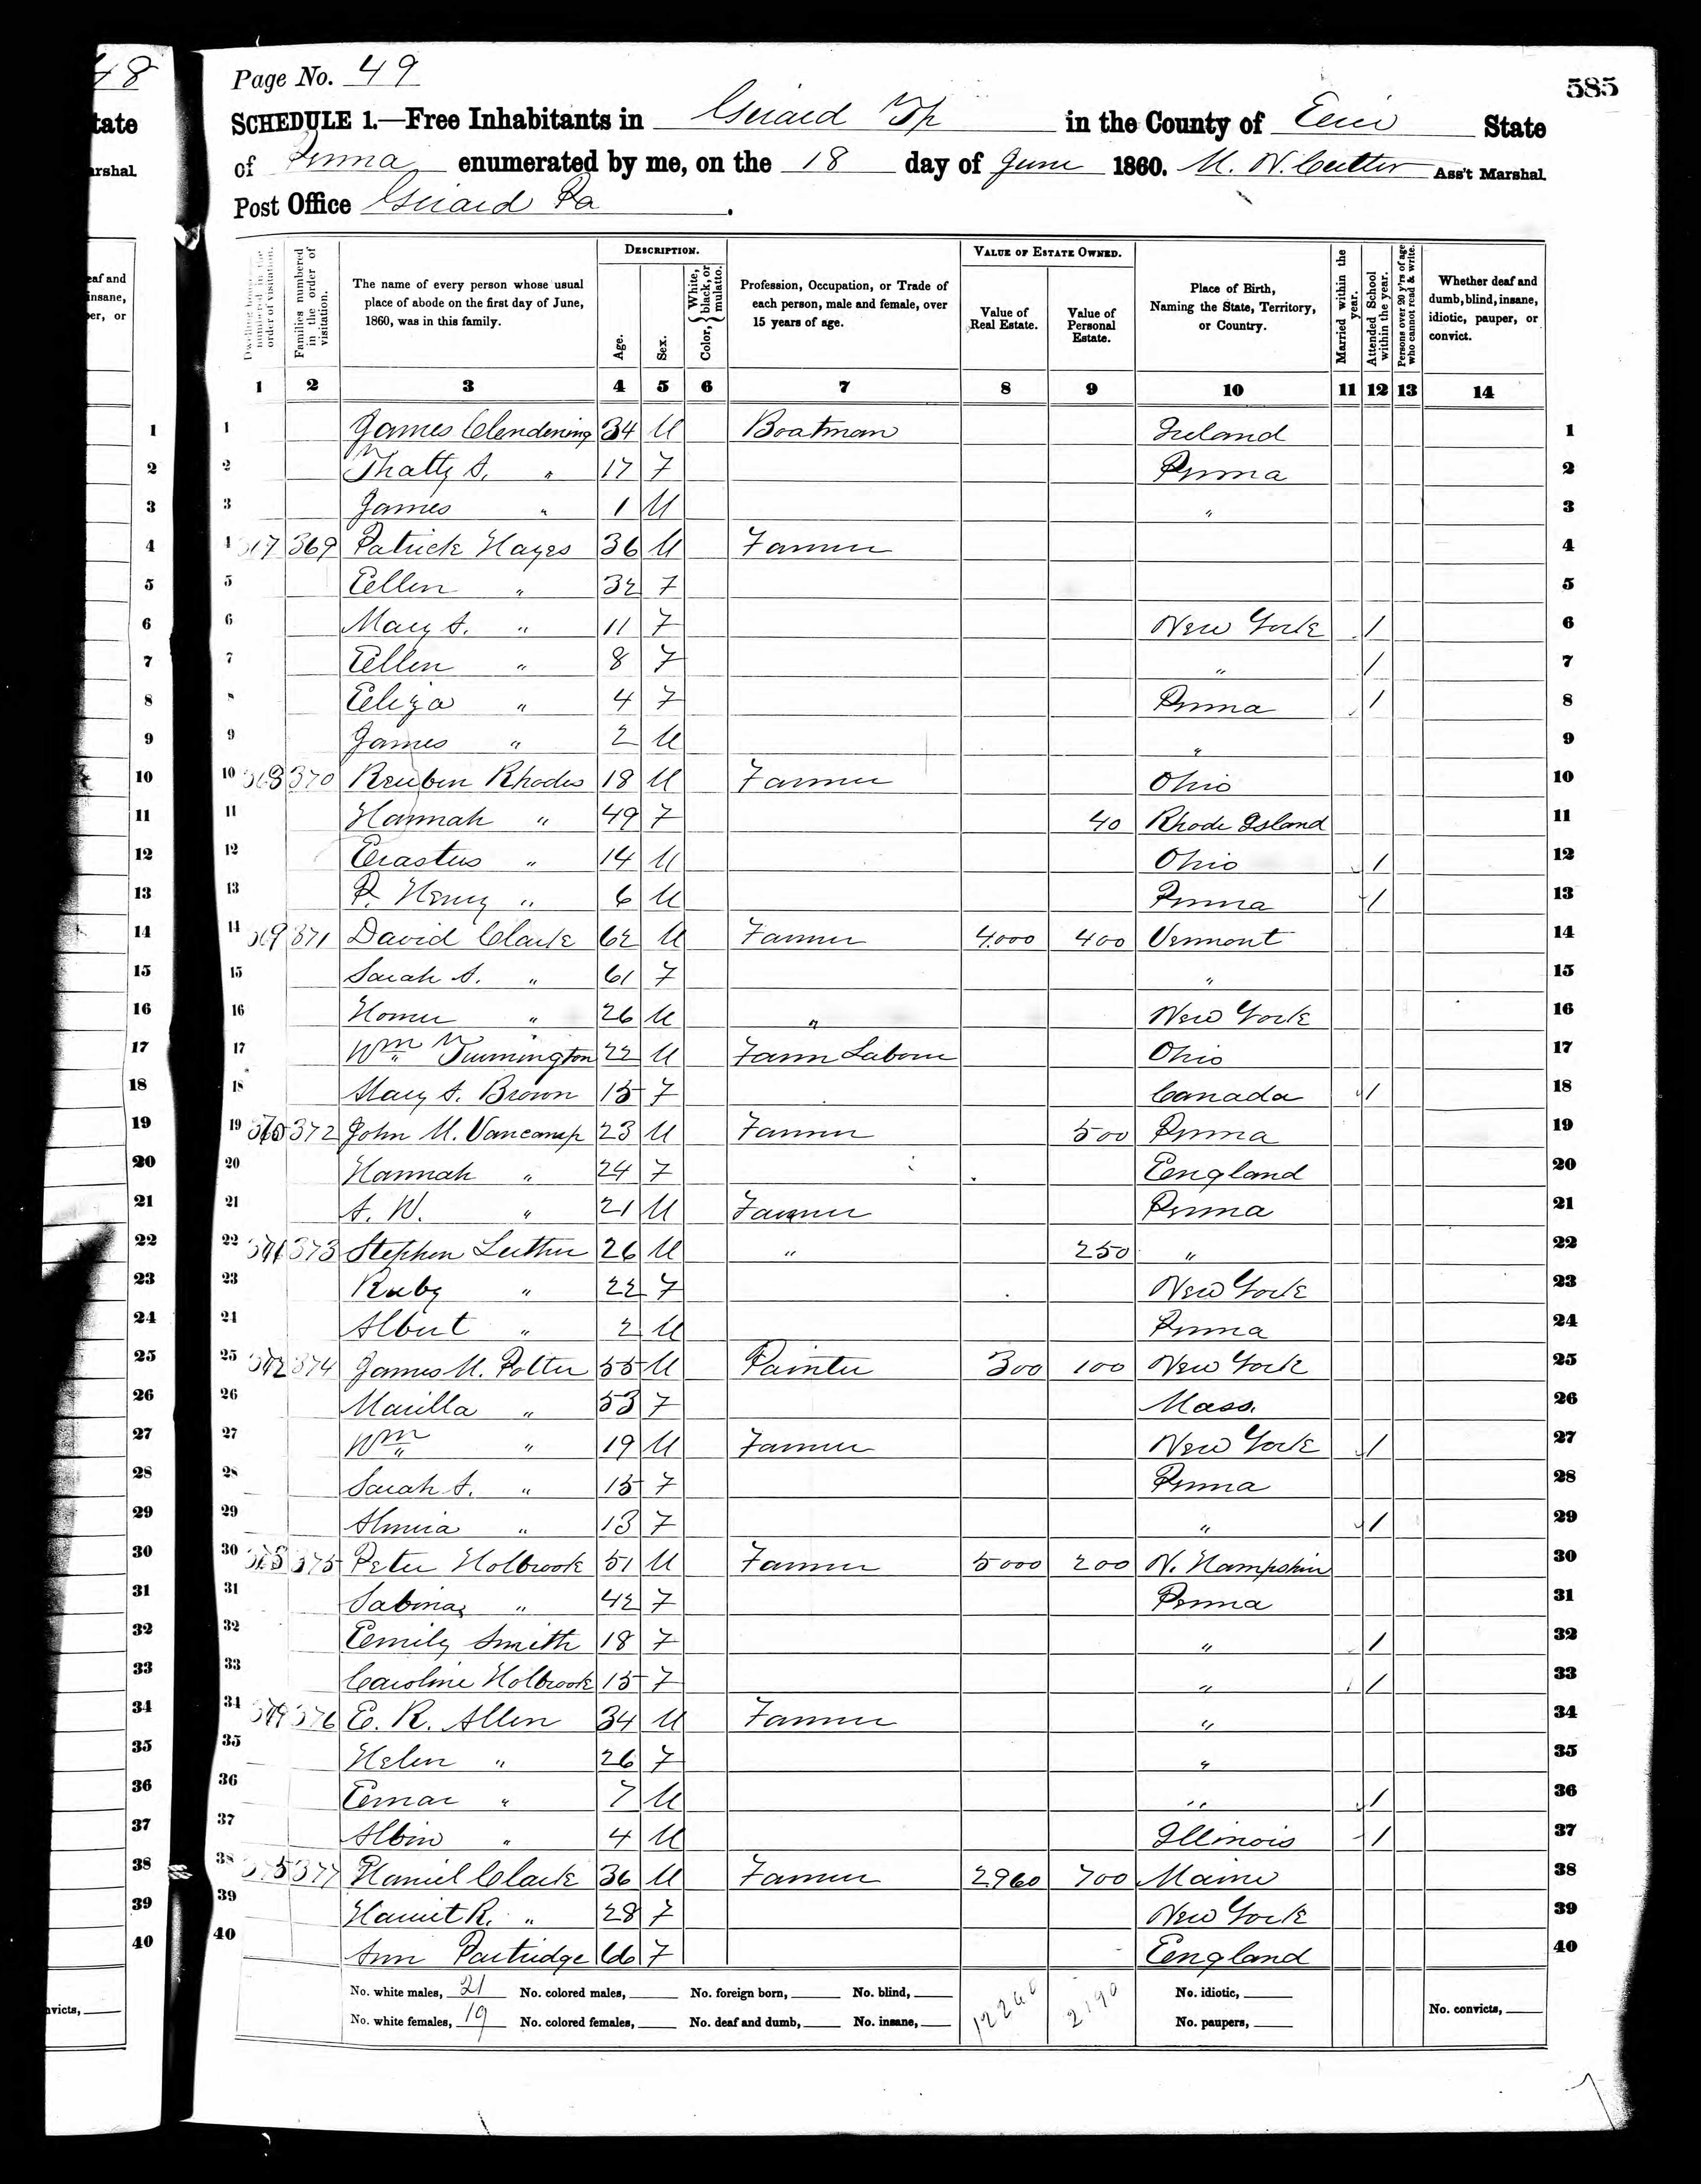 48
tate
arshal.
eaf and
insane,
er, or
Page No. 49
585
SCHEDULE 1.—Free Inhabitants in Girard Tp in the County of Erie State
of Penna enumerated by me, on the 18 day of June 1860. M. N. Cutler Ass't Marshal.
Post Office Girard Pa.
DESCRIPTION. VALUE OF ESTATE OWNED.
Dwelling-houses numbered in the order of visitation.
Families numbered in the order of visitation.
The name of every person whose usual place of abode on the first day of June, 1860, was in this family.
Age.
Sex.
Color, { White, black, or mulatto.
Profession, Occupation, or Trade of each person, male and female, over 15 years of age.
Value of Real Estate.
Value of Personal Estate.
Place of Birth, Naming the State, Territory, or Country.
Married within the year.
Attended School within the year.
Persons over 20 y'rs of age who cannot read & write.
Whether deaf and dumb, blind, insane, idiotic, pauper, or convict.
1 2 3 4 5 6 7 8 9 10 11 12 13 14
1 1 James Clendening 34 M Boatman Ireland 1
2 2 Thatty A. " 17 F Penna 2
3 3 James " 1 M " 3
4 4 369 Patrick Hayes 36 M Farmer 4
5 5 Ellen " 32 F 5
6 6 Mary A. " 11 F New York / 6
7 7 Ellen " 8 F " / 7
8 8 Eliza " 4 F Penna / 8
9 9 James " 2 M " 9
10 10 368 370 Reuben Rhodes 18 M Farmer Ohio 10
11 11 Hannah " 49 F 40 Rhode Island 11
12 12 Erastus " 14 M Ohio / 12
13 13 P. Henry " 6 M Penna / 13
14 14 369 371 David Clark 62 M Farmer 4000 400 Vermont 14
15 15 Sarah A. " 61 F " 15
16 16 Homer " 26 M " New York 16
17 17 Wm Turmington 22 M Farm Labour Ohio 17
18 18 Mary A. Brown 15 F Canada / 18
19 19 372 John M. Vancamp 23 M Farmer 500 Penna 19
20 20 Hannah " 24 F England 20
21 21 A. W. " 21 M Farmer Penna 21
22 22 371 373 Stephen Luther 26 M " 250 " 22
23 23 Ruby " 22 F New York 23
24 24 Albert " 2 M Penna 24
25 25 372 374 James M. Potter 55 M Painter 300 100 New York 25
26 26 Marilla " 53 F Mass. 26
27 27 Wm " 19 M Farmer New York / 27
28 28 Sarah A. " 15 F Penna 28
29 29 Almira " 13 F " / 29
30 30 375 Peter Holbrook 51 M Farmer 5000 200 N. Hampshire 30
31 31 Sabina " 42 F Penna 31
32 32 Emily Smith 18 F " / 32
33 33 Caroline Holbrook 15 F " / 33
34 34 376 E. R. Allen 34 M Farmer " 34
35 35 Helen " 26 F " 35
36 36 Eemar " 7 M " / 36
37 37 Albin " 4 M Illinois / 37
38 38 375 377 Daniel Clark 36 M Farmer 2960 700 Maine 38
39 39 Harriet R. " 28 F New York 39
40 40 Ann Partridge 66 F England 40
nvicts,
No. white males, 21 No. colored males, No. foreign born, No. blind, 12260 2190 No. idiotic,
No. white females, 19 No. colored females, No. deaf and dumb, No. insane, No. paupers, No. convicts,